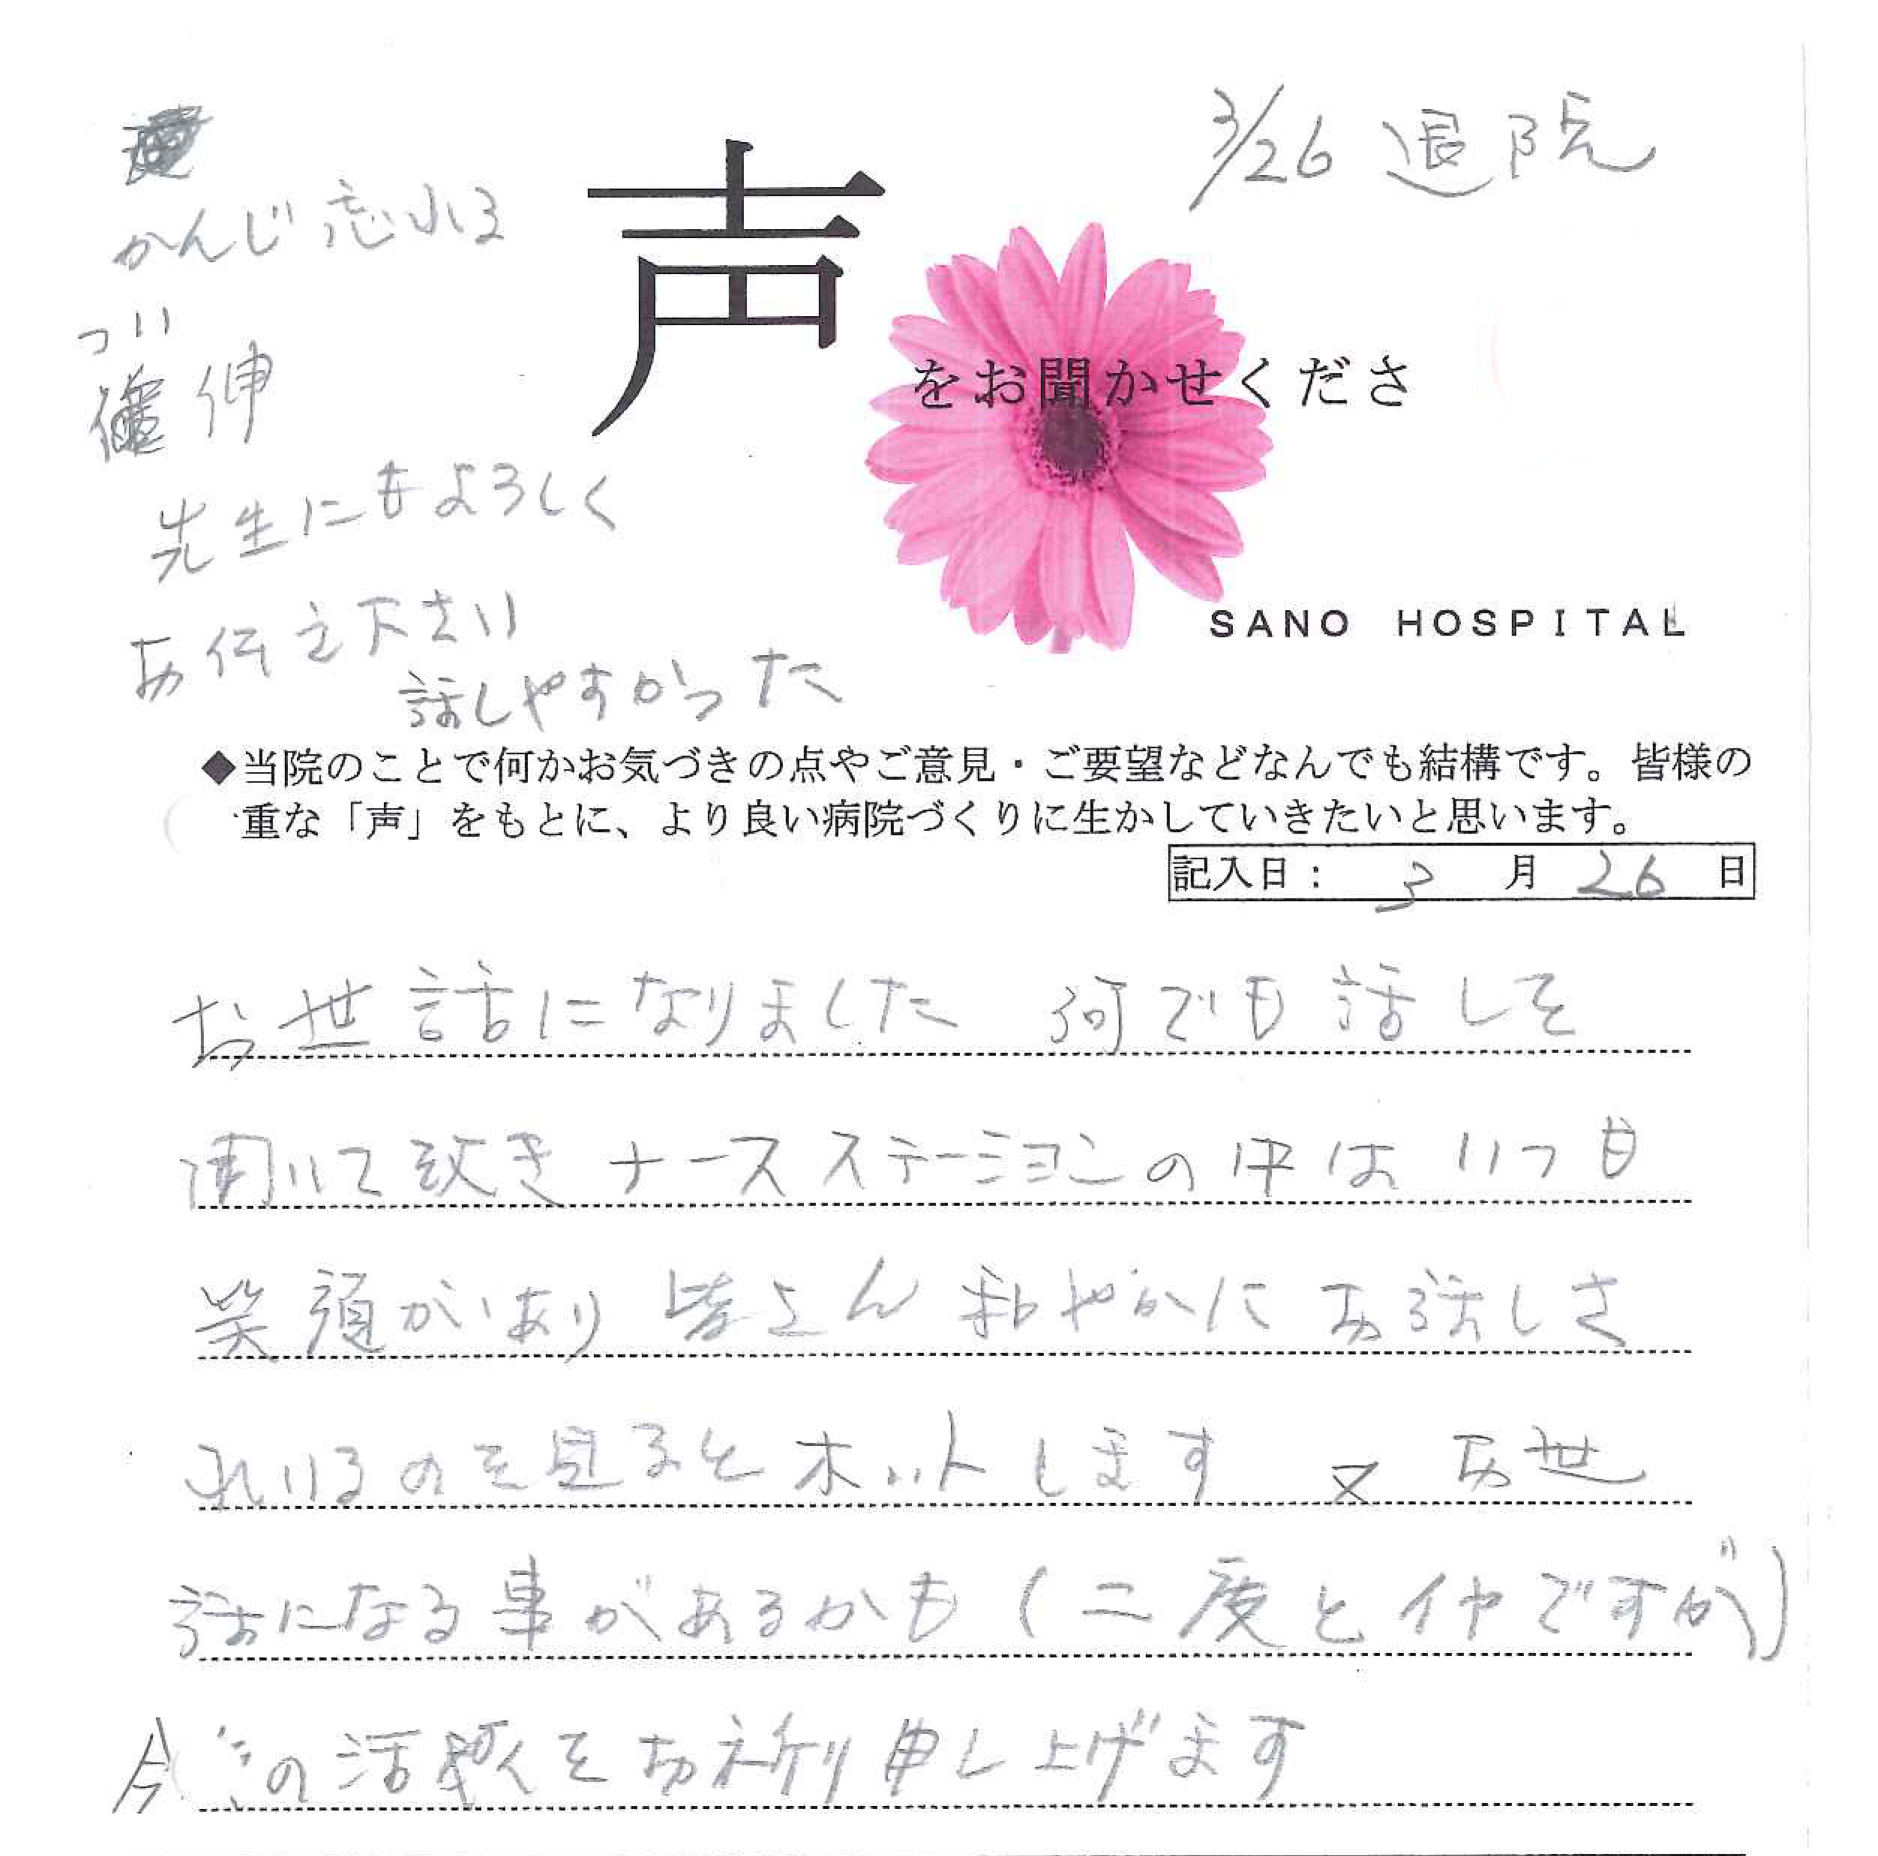 3/26 退院
かんじ忘れる
つい
伸
先生にもよろしく
お伝え下さい
話しやすかった
声
をお聞かせくださ
SANO HOSPITAL
◆当院のことで何かお気づきの点やご意見・ご要望などなんでも結構です。皆様の
重な「声」をもとに、より良い病院づくりに生かしていきたいと思います。
記入日： 3 月 26 日
お世話になりました 何でも話しを
聞いて頂き ナースステーションの中は いつも
笑顔があり 皆さん 和やかに お話しさ
れいるのを見ると ホットします 又 お世
話になる事があるかも (二度とイヤですが)
今 の活躍をお祈り申し上げます